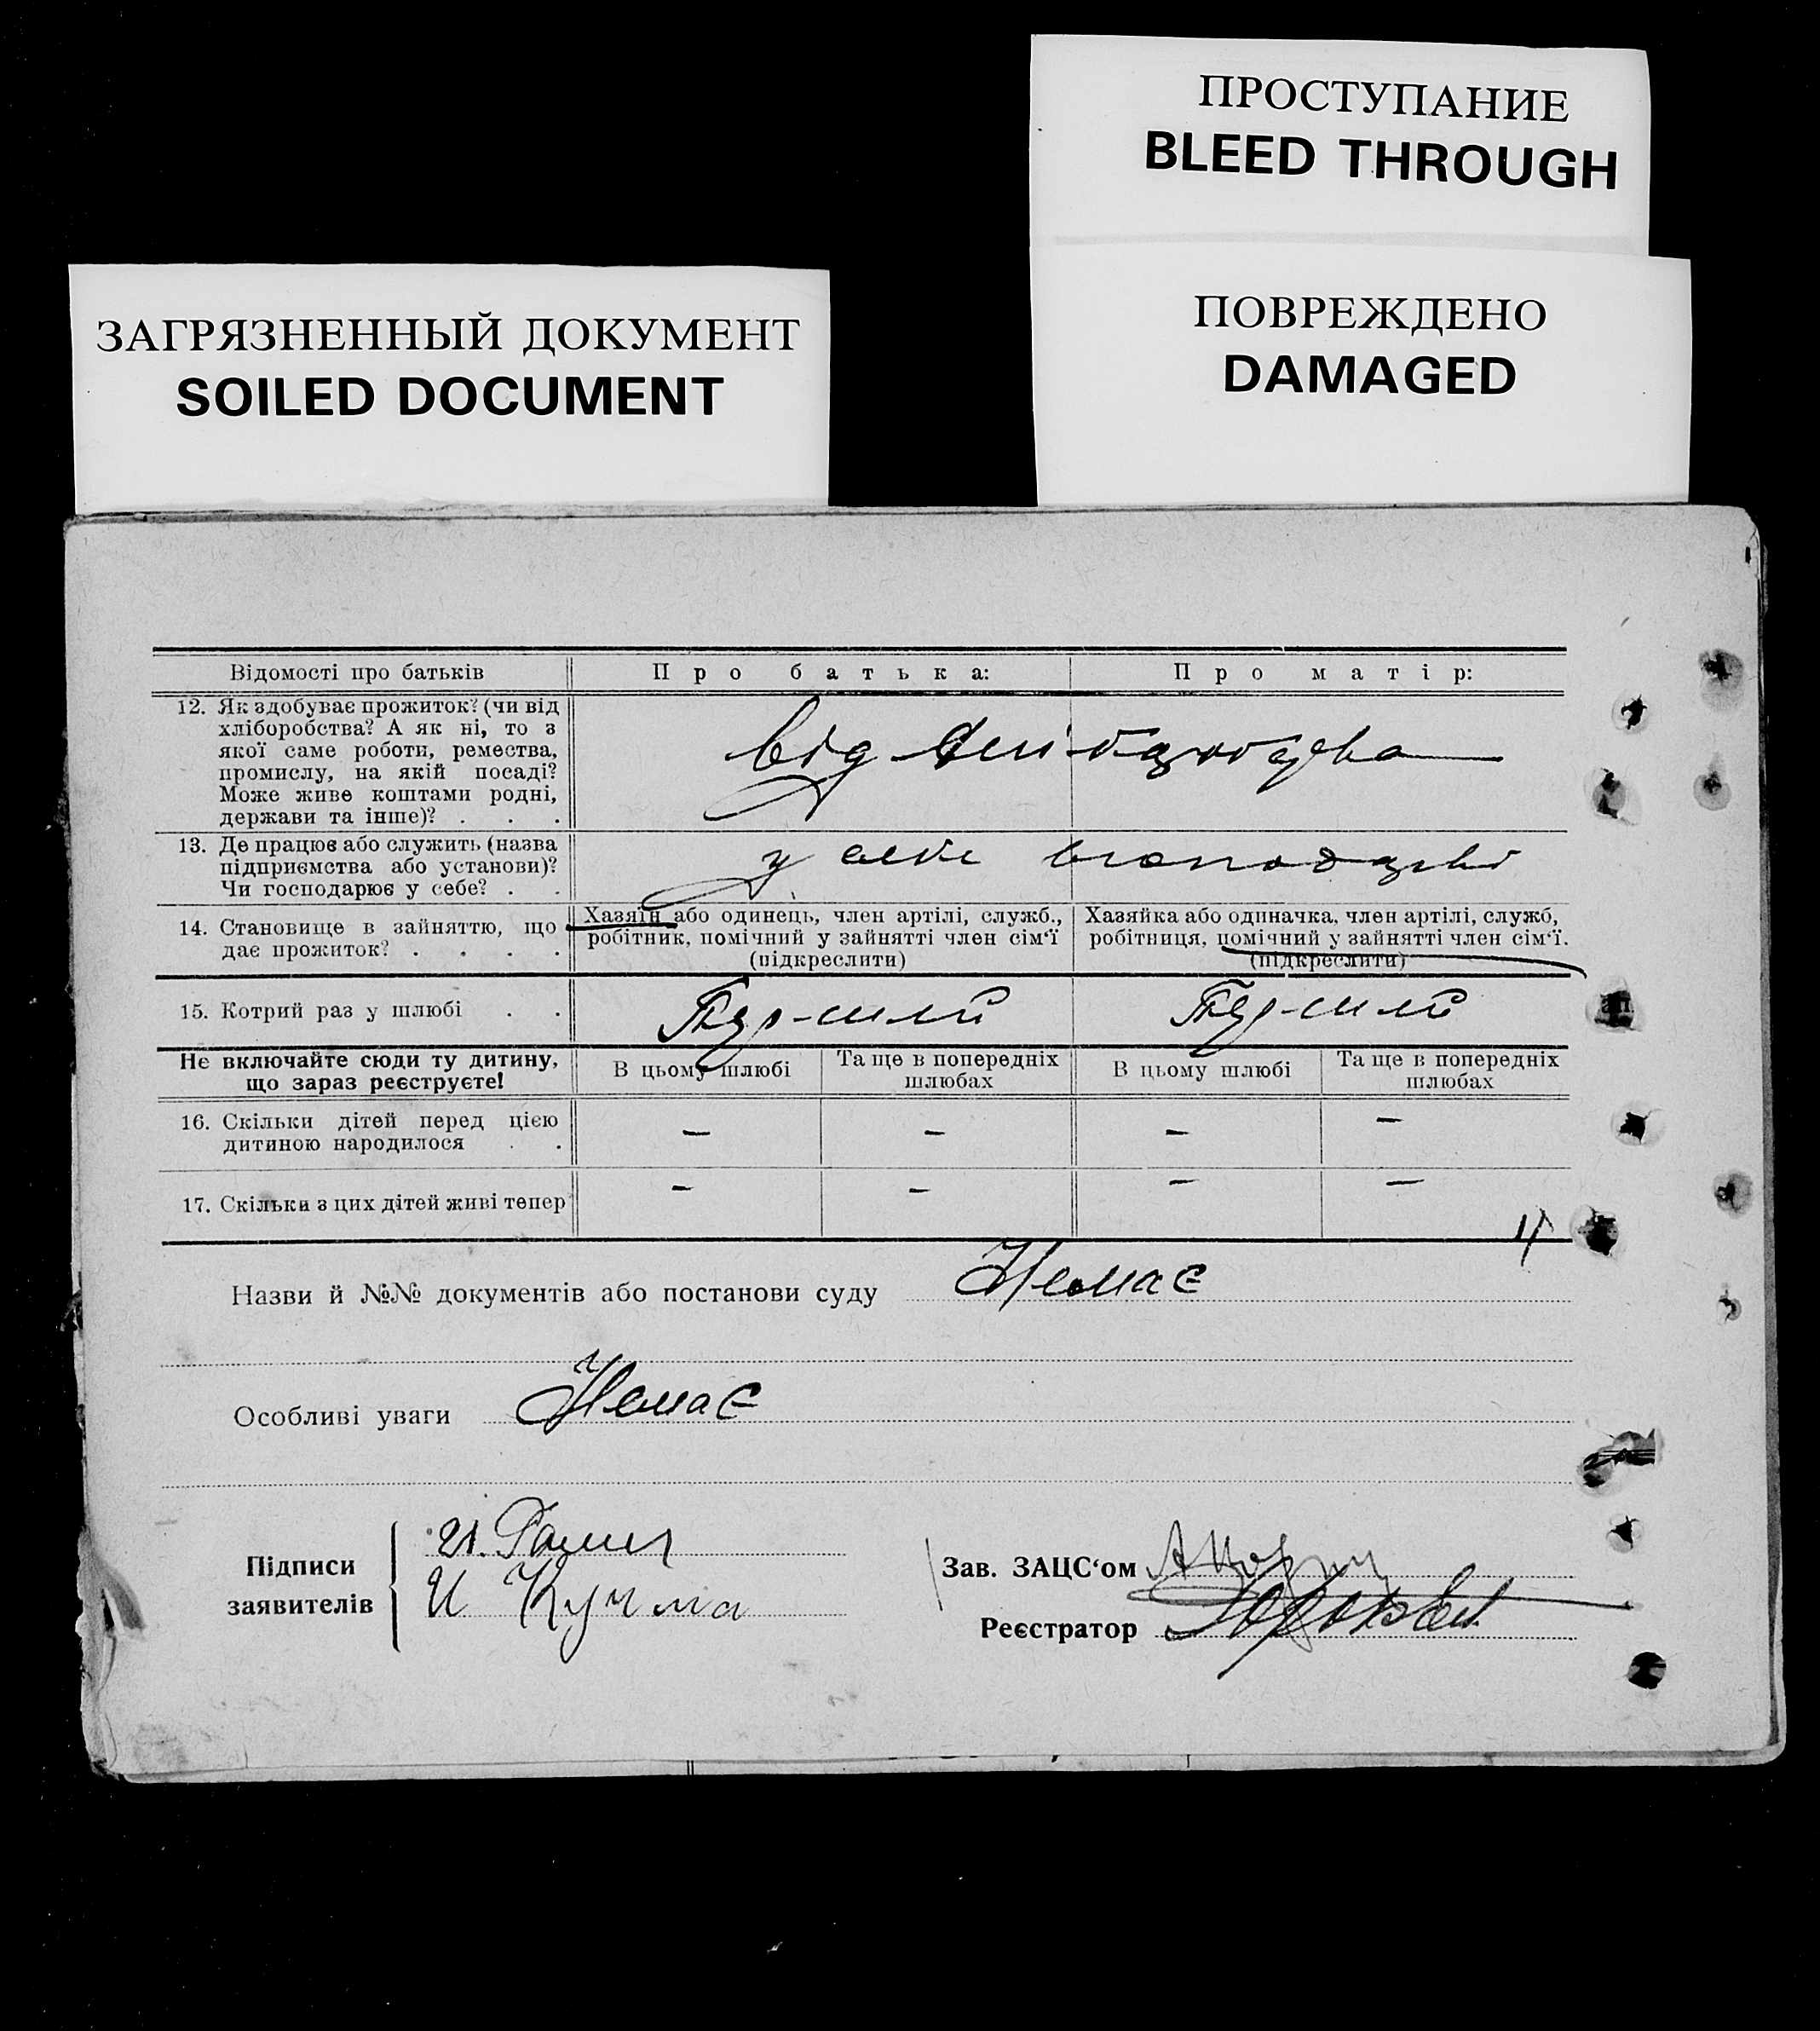 ПРОСТУПАНИЕ
BLEED THROUGH
ЗАГРЯЗНЕННЫЙ ДОКУМЕНТ
SOILED DOCUMENT
ПОВРЕЖДЕНО
DAMAGED
Відомості про батьків
Про батька:
Про матір:
12. Як здобуває прожиток? (чи від
хліборобства? А як ні, то з
якої саме роботи, ремества,
промислу, на якій посаді?
Може живе коштами родні,
держави та інше)? . . .
від
13. Де працює або служить (назва
підприємства або установи)?
Чи господарює у себе? . .
у себе
14. Становище в зайняттю, що
дає прожиток? . . . .
Хазяїн або одинець, член артілі, служб.,
робітник, помічний у зайнятті член сім'ї
(підкреслити)
Хазяйка або одиначка, член артілі, служб,
робітниця, помічний у зайнятті член сім'ї.
(підкреслити)
15. Котрий раз у шлюбі . .
Не включайте сюди ту дитину,
що зараз реєструєте!
В цьому шлюбі
Та ще в попередніх
шлюбах
В цьому шлюбі
Та ще в попередніх
шлюбах
16. Скільки дітей перед цією
дитиною народилося . .
— — — —
17. Скільки з цих дітей живі тепер
— — — —
Назви й №№ документів або постанови суду Немає
Особливі уваги Немає
Підписи
заявителів
И Кучма
Зав. ЗАЦС'ом
Реєстратор